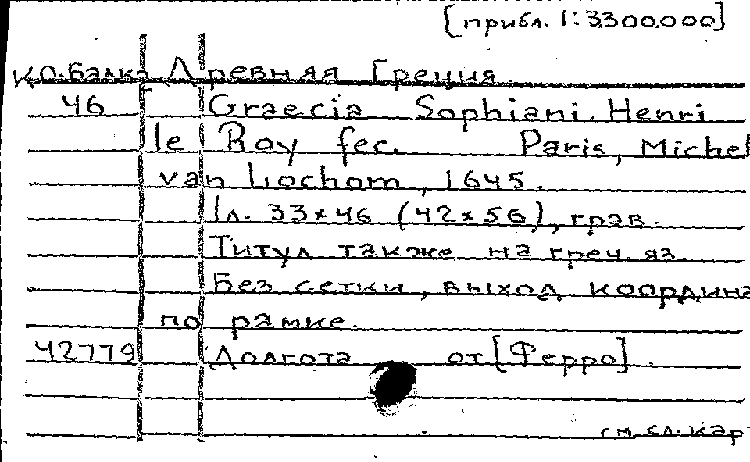 [прибл. 1:3300.000]
Ю.Балк. Древняя Греция.
46 Graecia Sophiani. Henri
le Roy fec. Paris, Michel
van Lochom, 1645.
1л. 33×46 (42×56), грав.
Титул также на греч. яз.
Без сетки, выход координа
по рамке.
42779 Долгота от [Ферро].
см. сл. кар